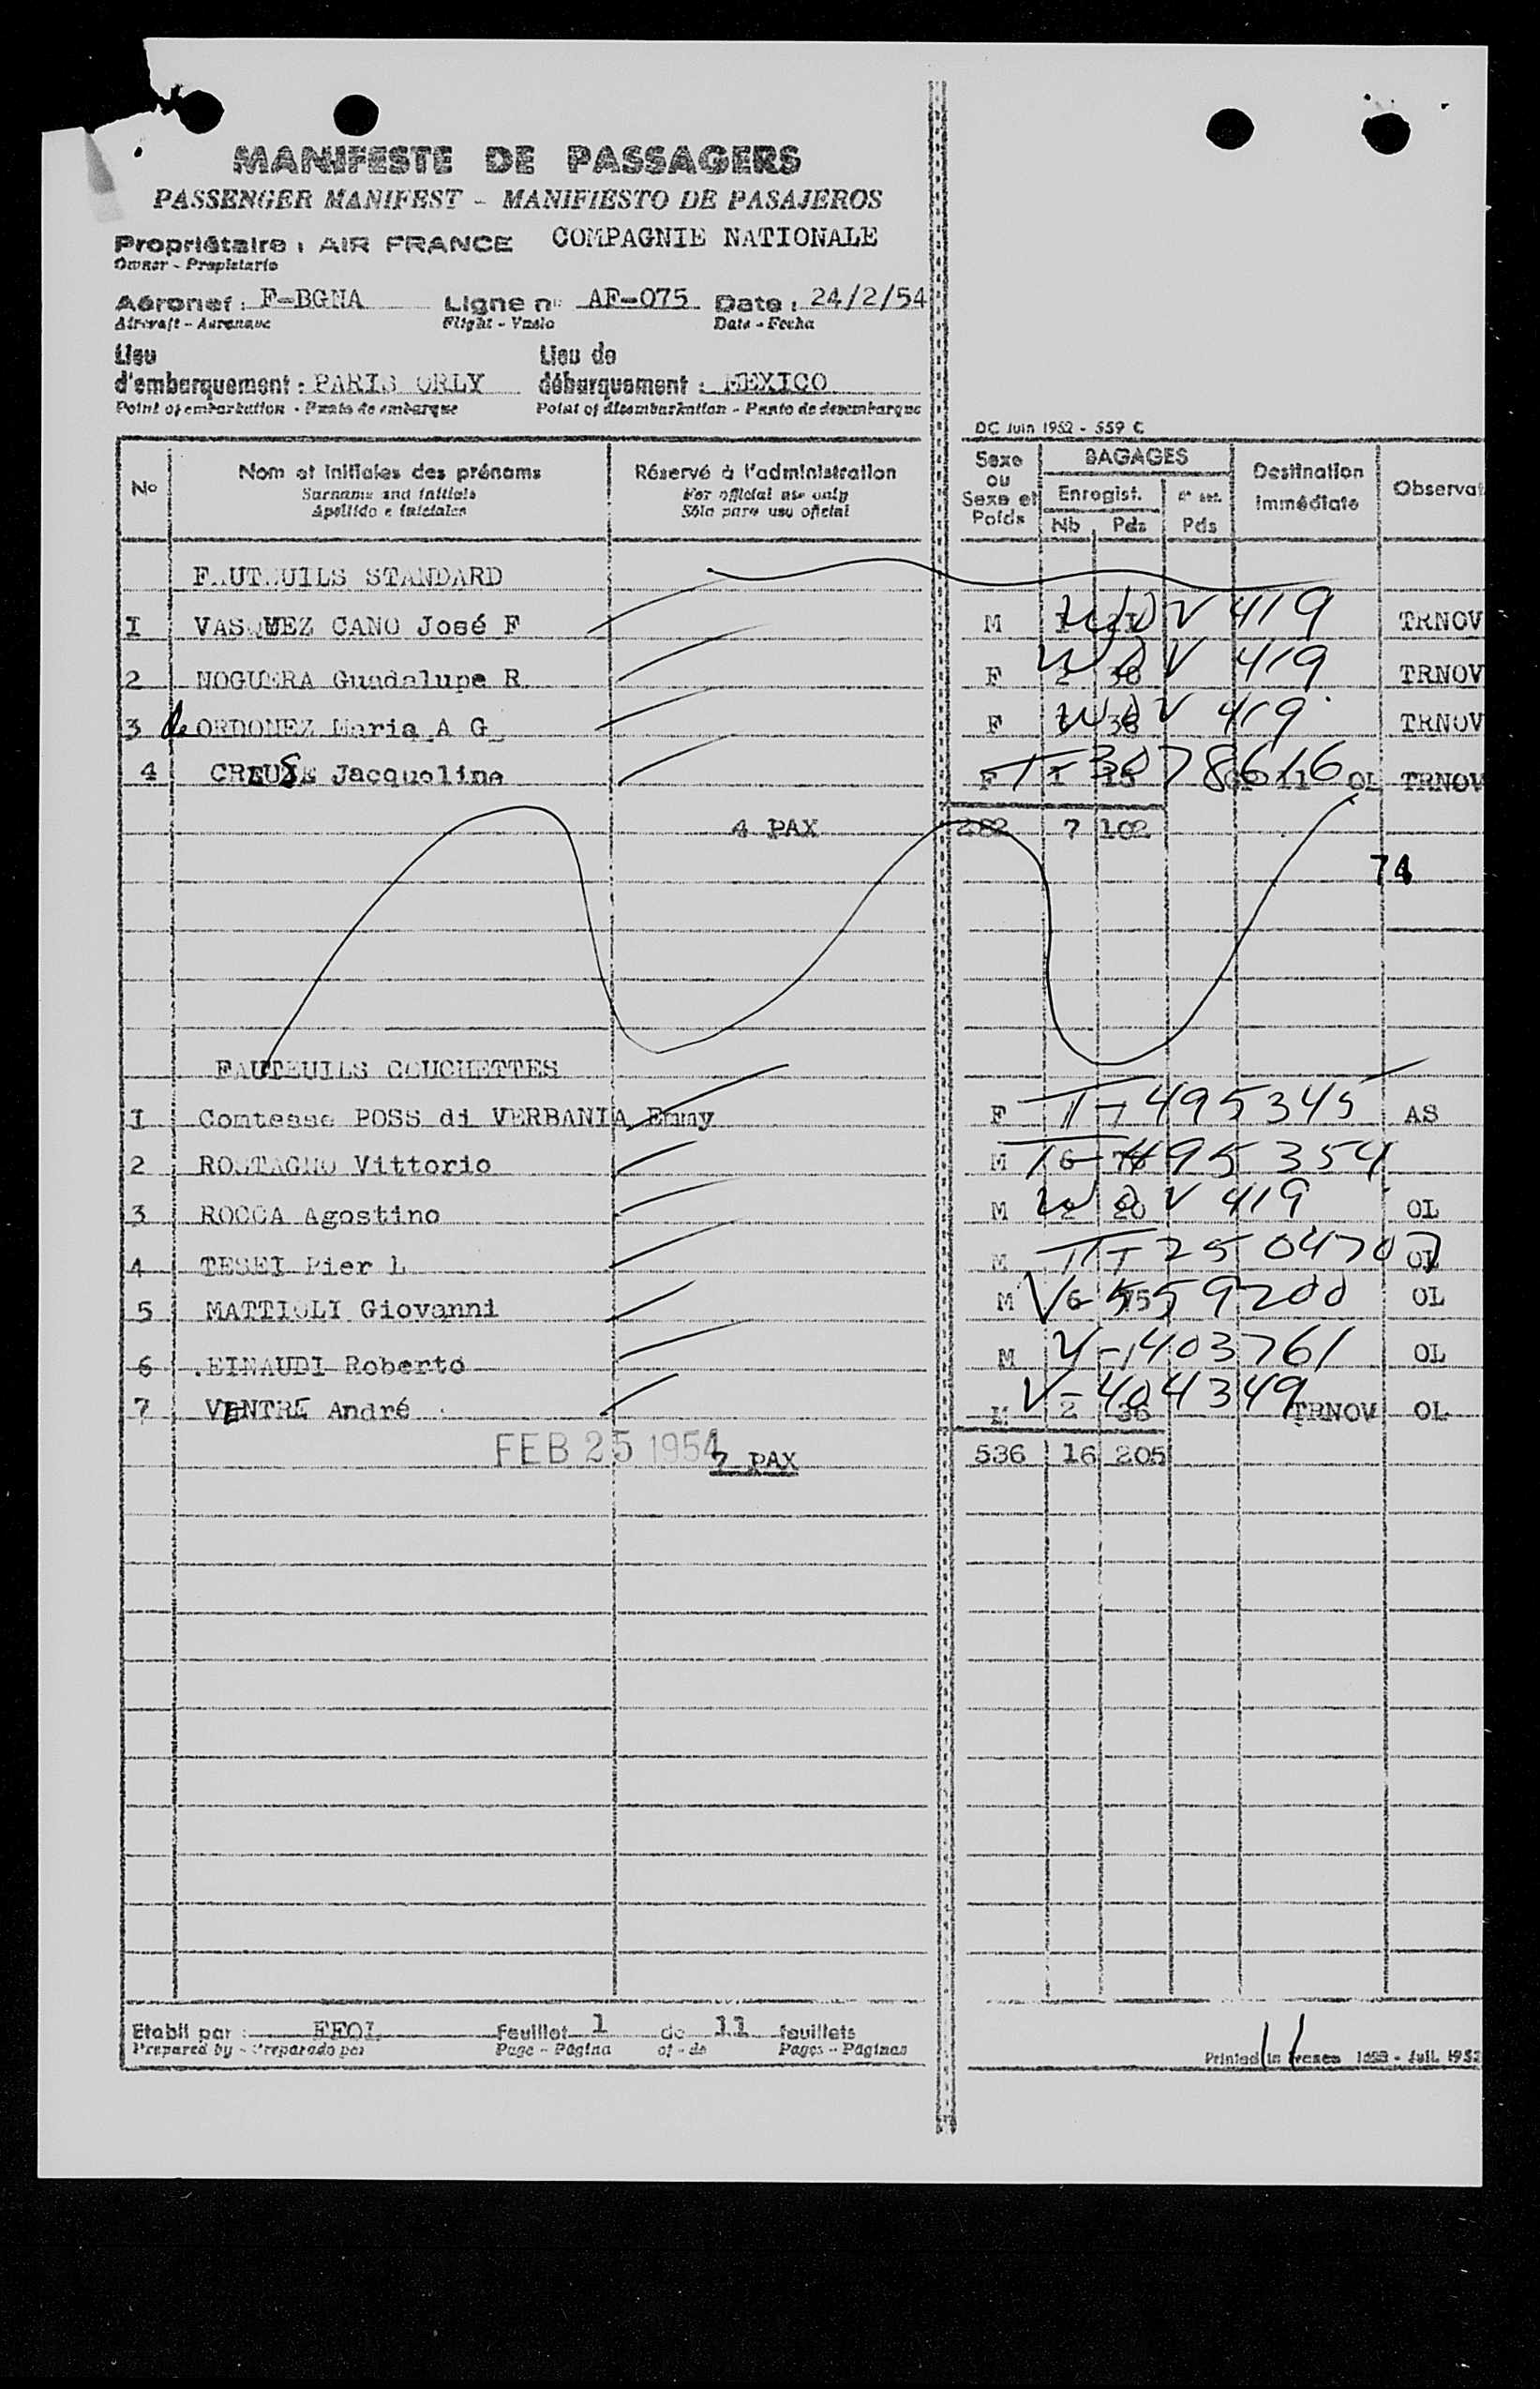 MANIFESTE DE PASSAGERS
PASSENGER MANIFEST - MANIFIESTO DE PASAJEROS
Propriétaire : AIR FRANCE COMPAGNIE NATIONALE
Owner - Propietario
Aéronef : F-BGNA Ligne n° AF-075 Date : 24/2/54
Aircraft - Aeronave Flight - Vuelo Date - Fecha
Lieu d'embarquement : PARIS ORLY Lieu de débarquement : MEXICO
Point of embarkation - Punto de embarque Point of disembarkation - Punto de desembarque
DC Juin 1952 - 559 C
No Nom et initiales des prénoms Réservé à l'administration Sexe ou Sexe et Poids BAGAGES Destination immédiate Observat
Surname and initials For official use only Enregist.
Apellido e iniciales Sólo para uso oficial Nb Pds Pds
FAUTEUILS STANDARD
I VASQUEZ CANO José F M WDV 419 TRNOV
2 NOGUERA Guadalupe R F 2 30 WDV 419 TRNOV
3 de ORDONEZ Maria A G F 36 WDV 419 TRNOV
4 CREUSE Jacqueline F I 15 T-3078616 OL TRNOV
4 PAX 282 7 102
74
FAUTEUILS COUCHETTES
I Comtesse POSS di VERBANIA Emmy F T-495345 AS
2 ROSTAGNO Vittorio M 6 T-495354
3 ROCCA Agostino M 2 20 WDV 419 OL
4 TESEI Pier L M T-2504707 OL
5 MATTIOLI Giovanni M 6 V-559200 OL
6 EINAUDI Roberto M V-1403761 OL
7 VENTRE André M 2 36 V-404349 TRNOV OL
FEB 25 1954 7 PAX 536 16 205
Etabli par : FFOL Feuillet 1 de 11 feuillets
Prepared by - Preparado por Page - Página of - de Pages - Páginas
11
Printed in France 1623 - Juil. 1952